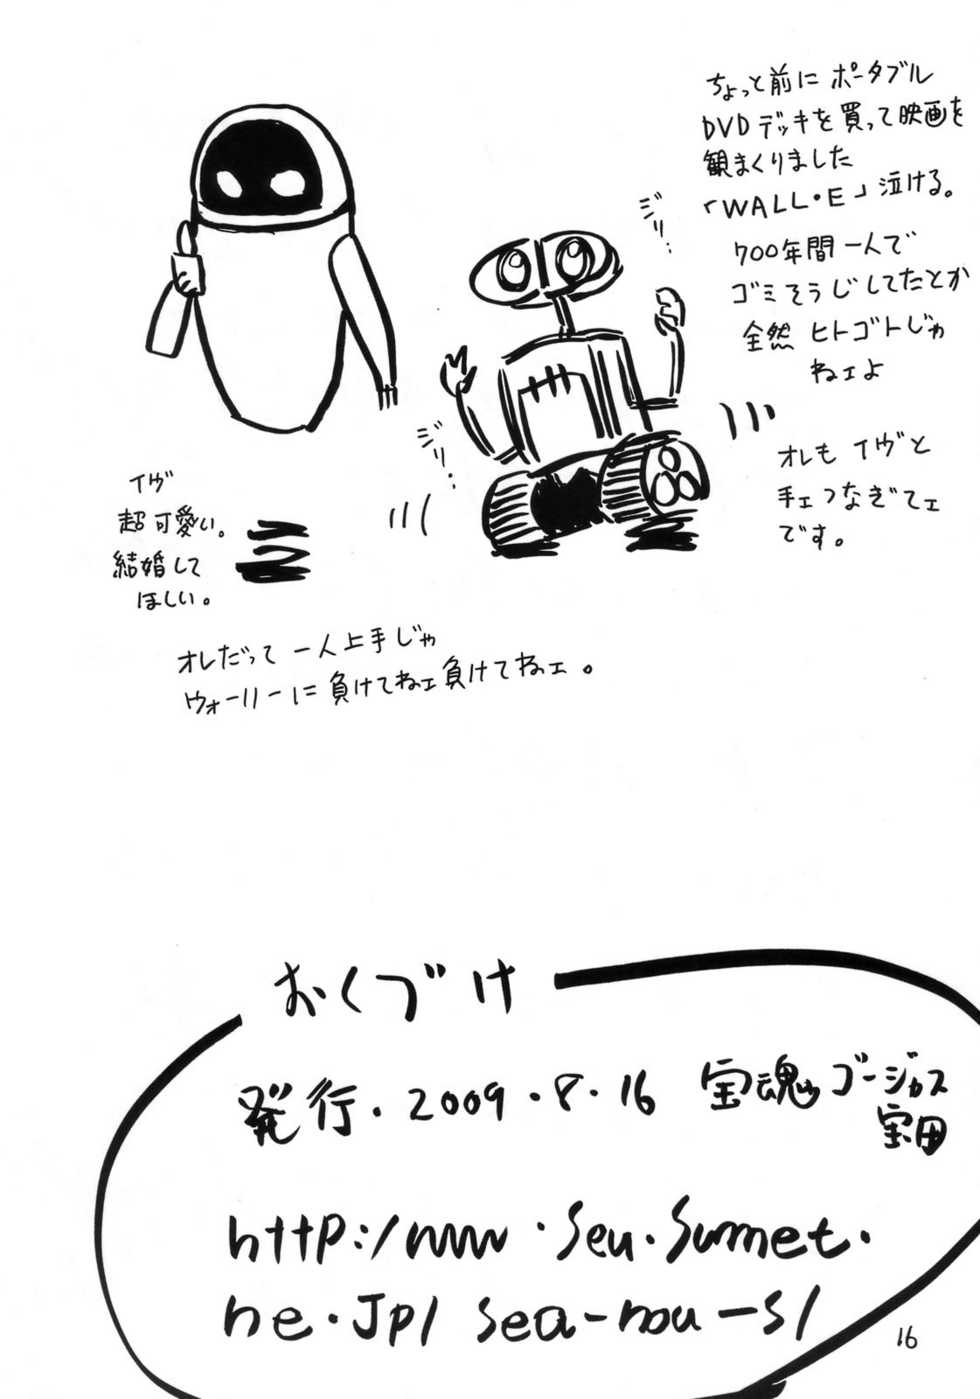 ちょっと前に ポータブル
DVDデッキを買って映画を
観まくりました
「WALL・E」泣ける。
700年間一人で
ゴミそうじしてたとか
全然 ヒトゴトじゃ
ねェよ
ジリ・・
ジリ・・
オレも イヴと
手ェつなぎてェ
です。
イヴ
超可愛い。
結婚して
ほしい。
オレだって 一人上手じゃ
ウォーリーに負けてねェ負けてねェ。
おくづけ
発行・2009・8・16 宝魂 ゴージャス
宝田
ne.jp/sea-nou-s/
16